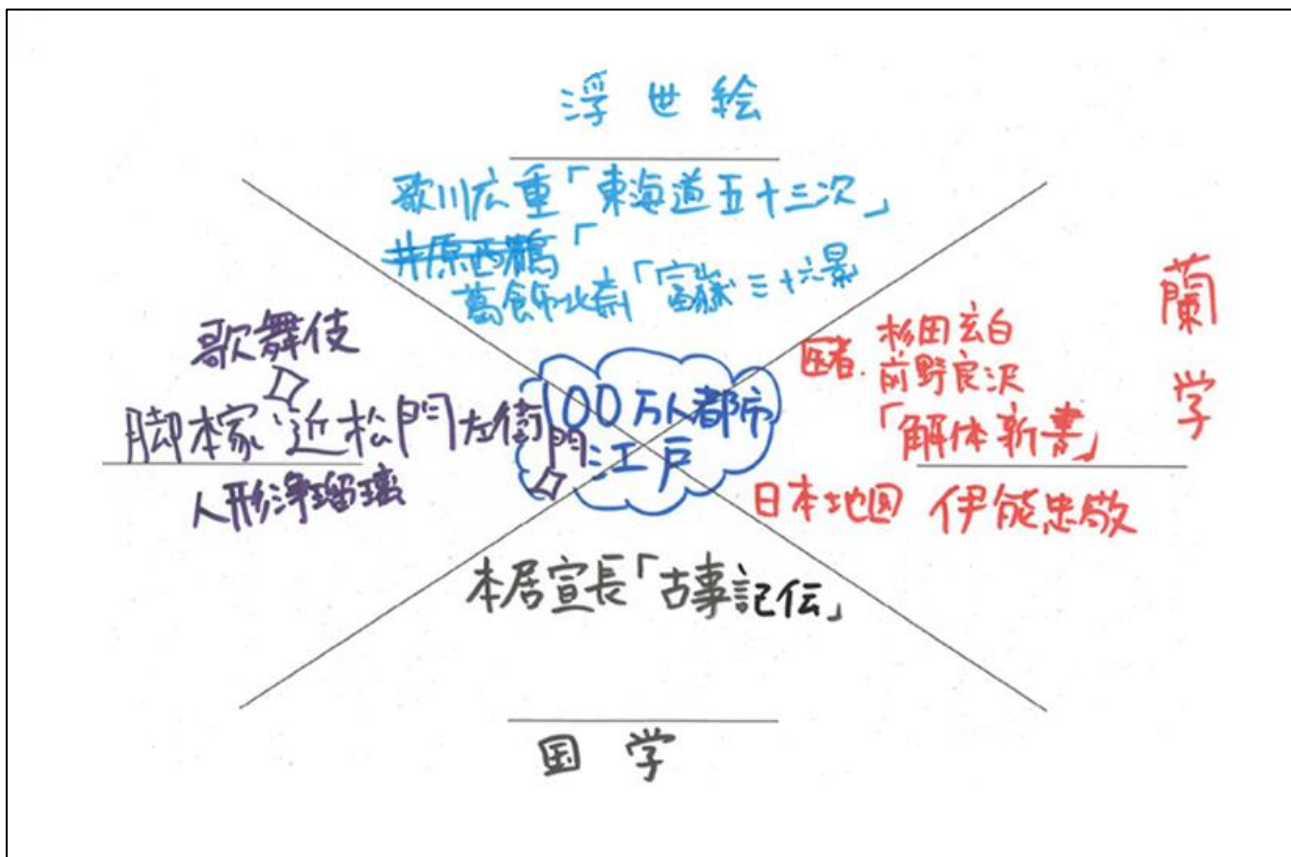 浮世絵
歌川広重「東海道五十三次」
井原西鶴「
葛飾北斎「富嶽三十六景
歌舞伎
脚本家 近松門左衛門
人形浄瑠璃
100万人都市
江戸
医者. 杉田玄白
前野良沢
「解体新書」
日本地図 伊能忠敬
蘭学
本居宣長「古事記伝」
国学